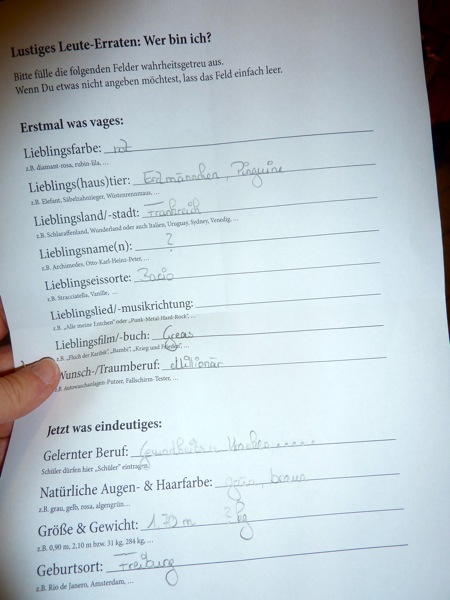 Lustiges Leute-Erraten: Wer bin ich?
Bitte fülle die folgenden Felder wahrheitsgetreu aus.
Wenn Du etwas nicht angeben möchtest, lass das Feld einfach leer.
Erstmal was vages:
Lieblingsfarbe: rot
z.B. diamant-rosa, rubin-lila, ...
Lieblings(haus)tier: Erdmännchen, Pinguine
z.B. Elefant, Säbelzahntieger, Wüstenrennmaus, ...
Lieblingsland/-stadt: Frankreich
z.B. Schlaraffenland, Wunderland oder auch Italien, Uruguay, Sydney, Venedig, ...
Lieblingsname(n): ?
z.B. Archimedes, Otto-Karl-Heinz-Peter, ...
Lieblingseissorte: Bacio
z.B. Stracciatella, Vanille, ...
Lieblingslied/-musikrichtung:
z.B. „Alle meine Entchen" oder „Punk-Metal-Hard-Rock", ...
Lieblingsfilm/-buch: Greas
z.B. „Fluch der Karibik", „Bambi", „Krieg und Frieden", ...
Wunsch-/Traumberuf: Millionär
z.B. Autowaschanlagen-Putzer, Fallschirm-Tester, ...
Jetzt was eindeutiges:
Gelernter Beruf:
Schüler dürfen hier „Schüler" eintragen
Natürliche Augen- & Haarfarbe: grün, braun
z.B. grau, gelb, rosa, algengrün...
Größe & Gewicht: 1.70 m ? kg
z.B. 0,90 m, 2,10 m bzw. 31 kg, 284 kg, ...
Geburtsort: Freiburg
z.B. Rio de Janero, Amsterdam, ...